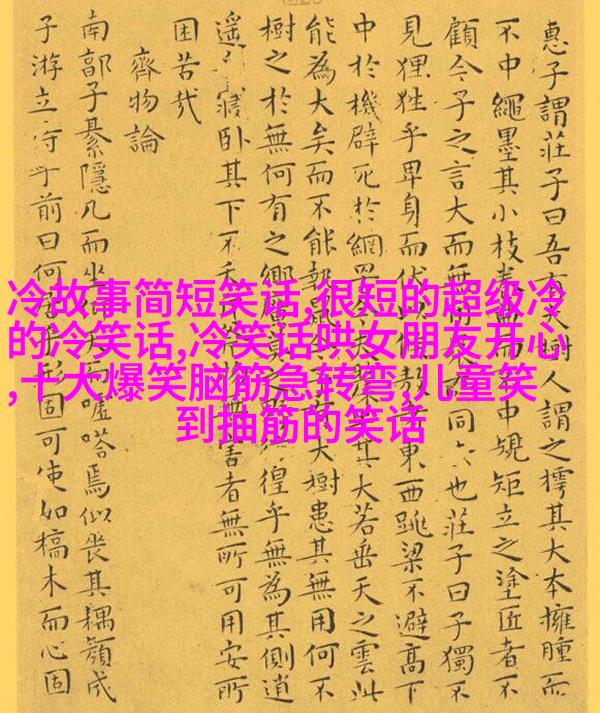 惠子謂莊子曰吾有大樹人謂之樗其大本擁腫而
不中繩墨其小枝卷而不中規矩立之塗匠者不
顧今子之言大而無同也莊子曰子獨不
見狸狌乎卑身而伏敖者東西跳梁不避高下
中於機辟死於網其大若垂天之雲此
能為大矣而不能執鼠大樹患其無用何不
樹之於無何有之鄉廣莫之徨乎無為其側逍
遙寢卧其下不害者無所可用安所
困苦哉
齊物論
南郭子綦隱几而坐天而噓嗒焉似喪其耦顏成
子游立侍乎前曰何形固可使如槁木而心固
冷故事简短笑话,很短的超级冷
的冷笑话,冷笑话哄女朋友开心
,十大爆笑脑筋急转弯,儿童笑
到抽筋的笑话